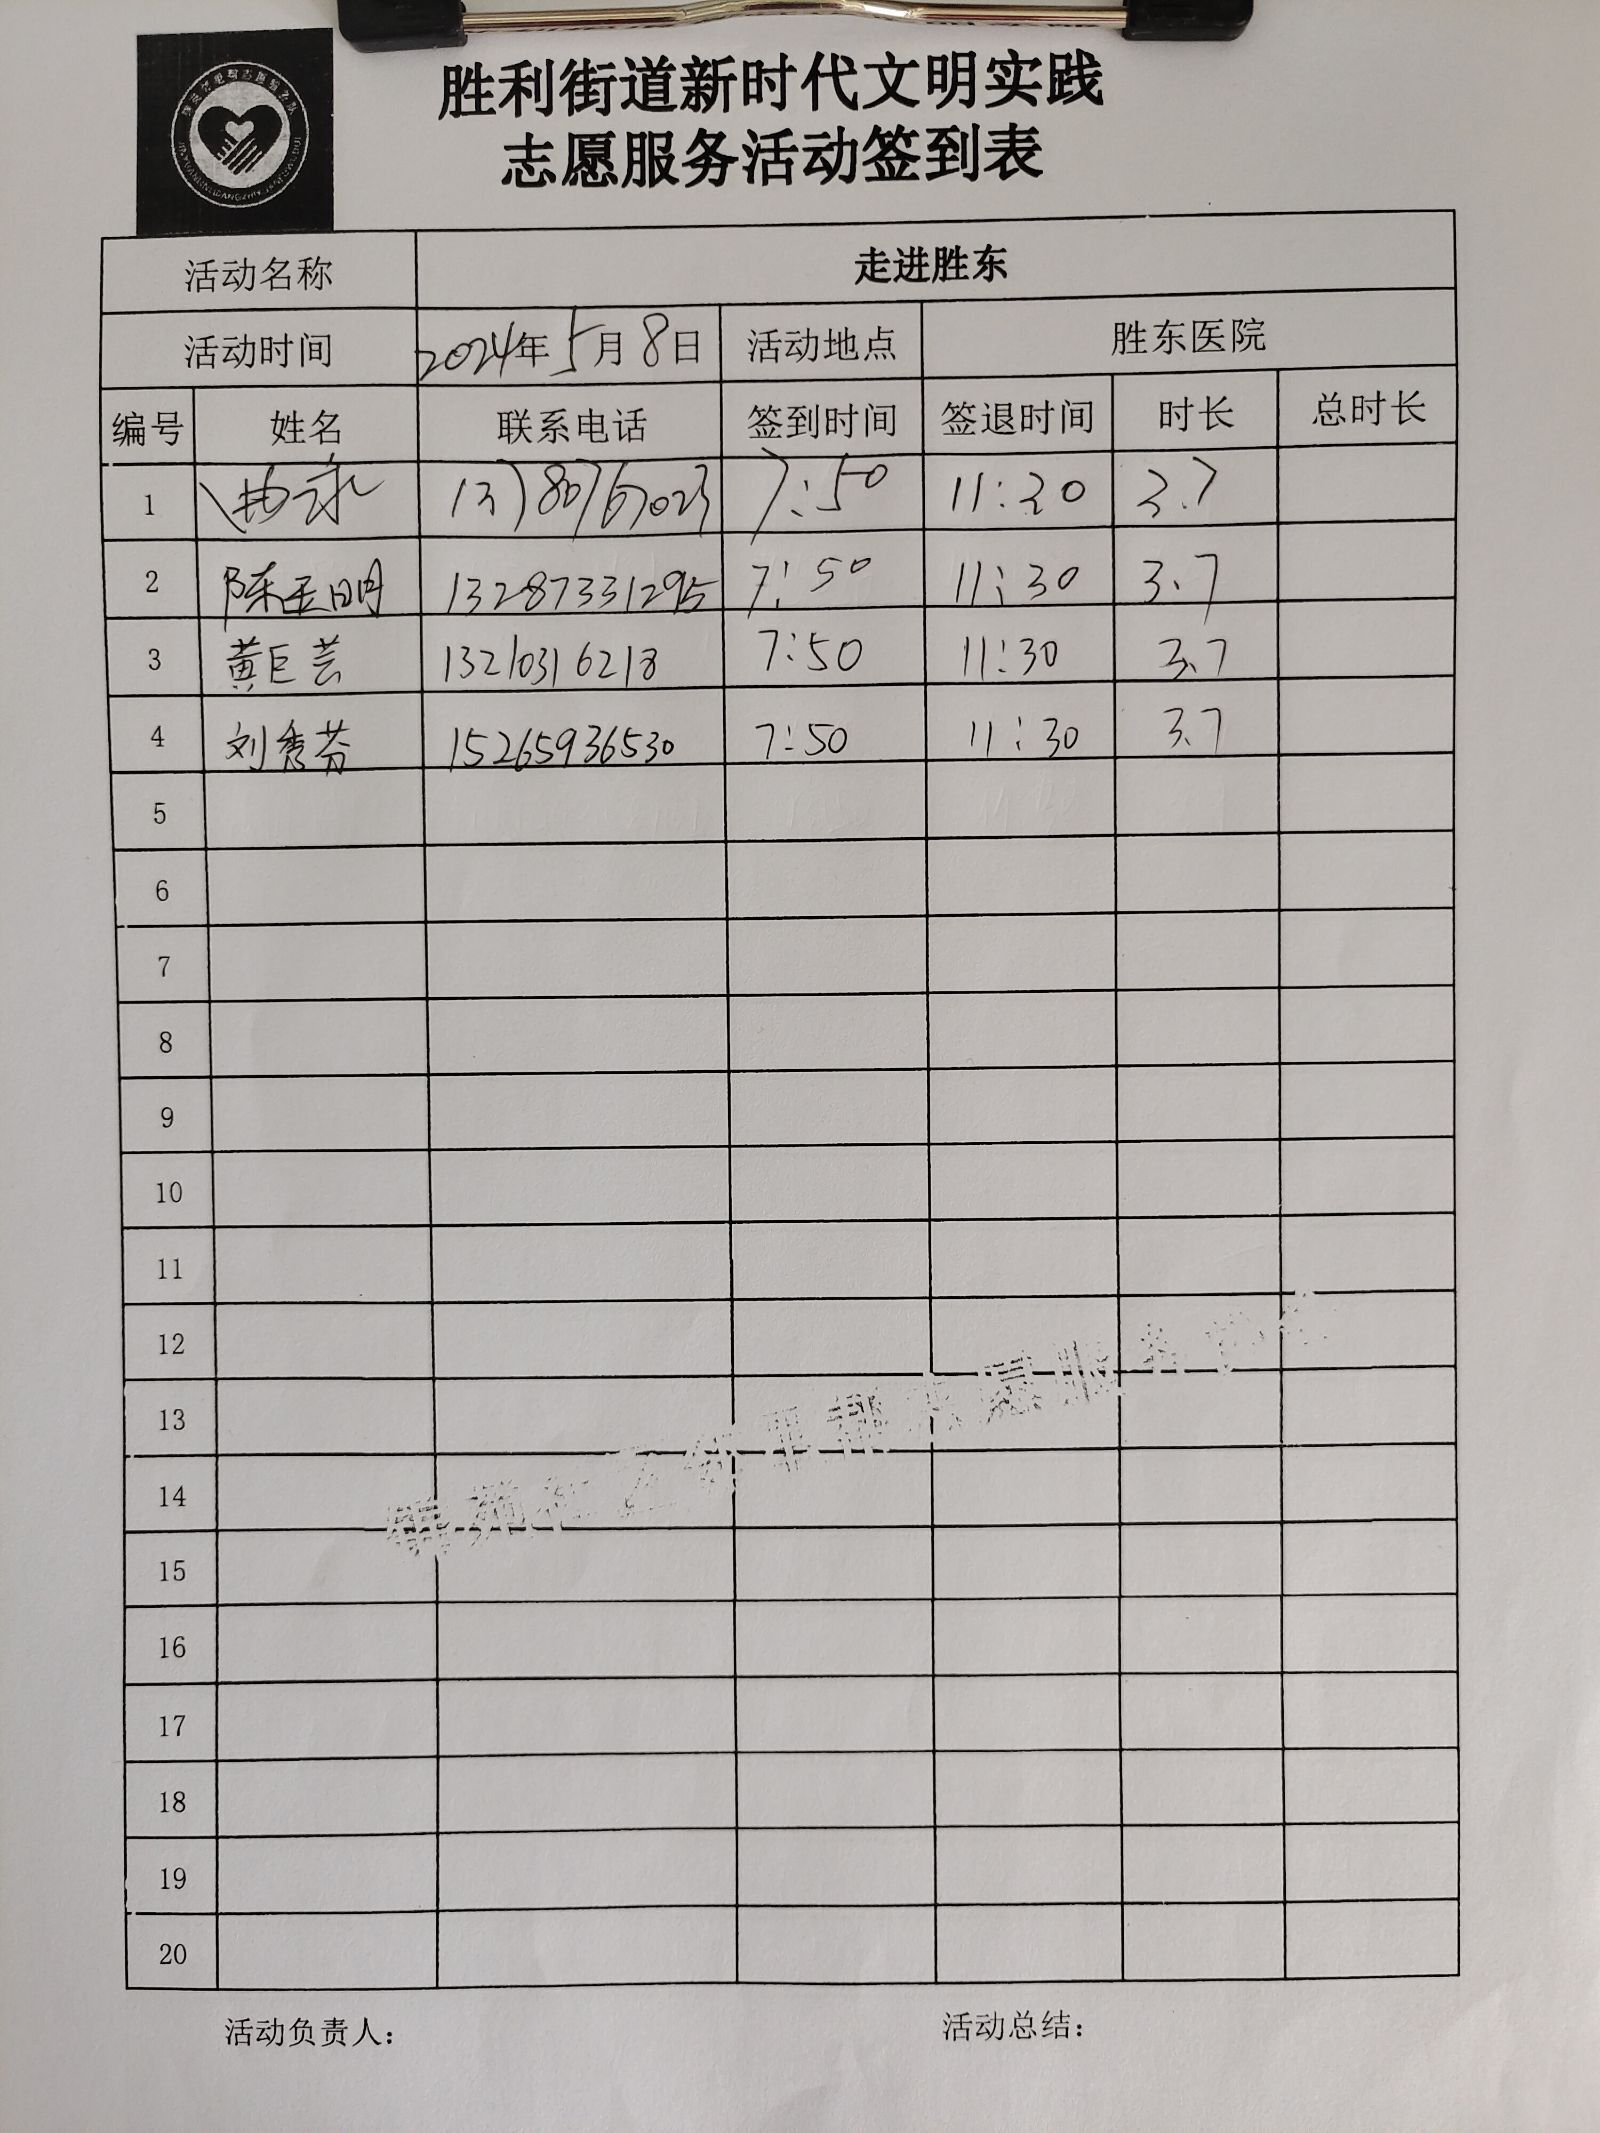 胜利街道新时代文明实践
志愿服务活动签到表
活动名称 走进胜东
活动时间 2024年5月8日 活动地点 胜东医院
编号 姓名 联系电话 签到时间 签退时间 时长 总时长
1 7:50 11:30 3.7
2 陈玉明 13287331295 7:50 11:30 3.7
3 黄巨芸 13210316218 7:50 11:30 3.7
4 刘秀芬 15265936530 7:50 11:30 3.7
5
6
7
8
9
10
11
12
13
14
15
16
17
18
19
20
活动负责人: 活动总结: